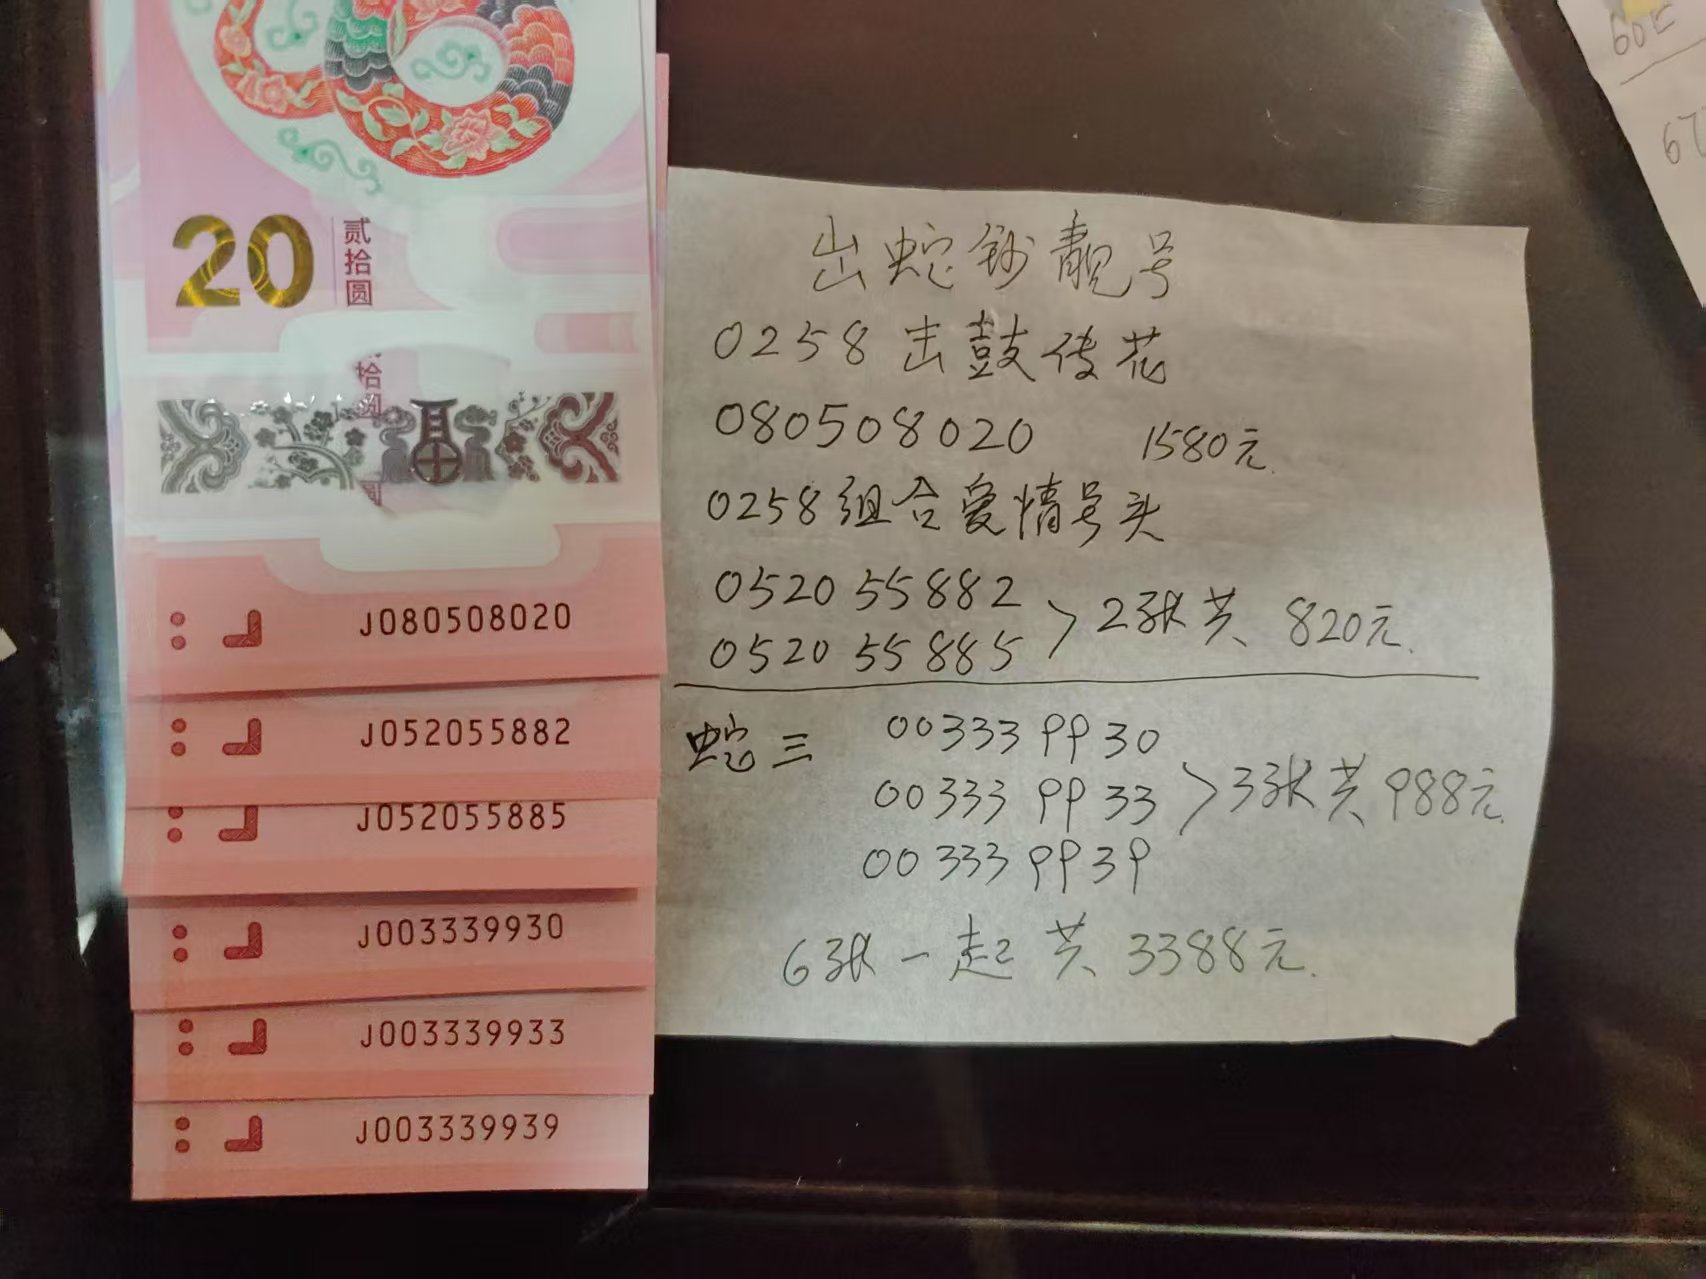 20
贰拾圆
拾圆
J080508020
J052055882
J052055885
J003339930
J003339933
J003339939
出蛇钞靓号
0258 击鼓传花
080508020 1580元.
0258组合爱情号头
0520 55882
0520 55885 > 2张共 820元.
蛇三 00333 99 30
00333 99 33 > 3张共 988元.
00 333 99 39
6张一起共 3388元.